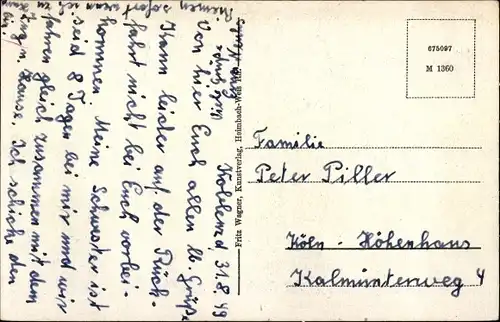 Koblenz, 31.8.49
Von hier Euch allen lb. Grüße
Kann leider auf der Rück-
fahrt nicht bei Euch vorbei-
kommen. Meine Schwester ist
seid 8 Tagen bei mir und wir
fahren gleich zusammen mit dem
Zug n. Hause. Ich schicke den
Riemen sofort wenn ich zu Haus
bin
Fritz Wagner, Kunstverlag, Heimbach-Weis Rh.
675097
M 1360
Familie
Peter Piller
Köln - Höhenhaus
Kalmünterweg 4